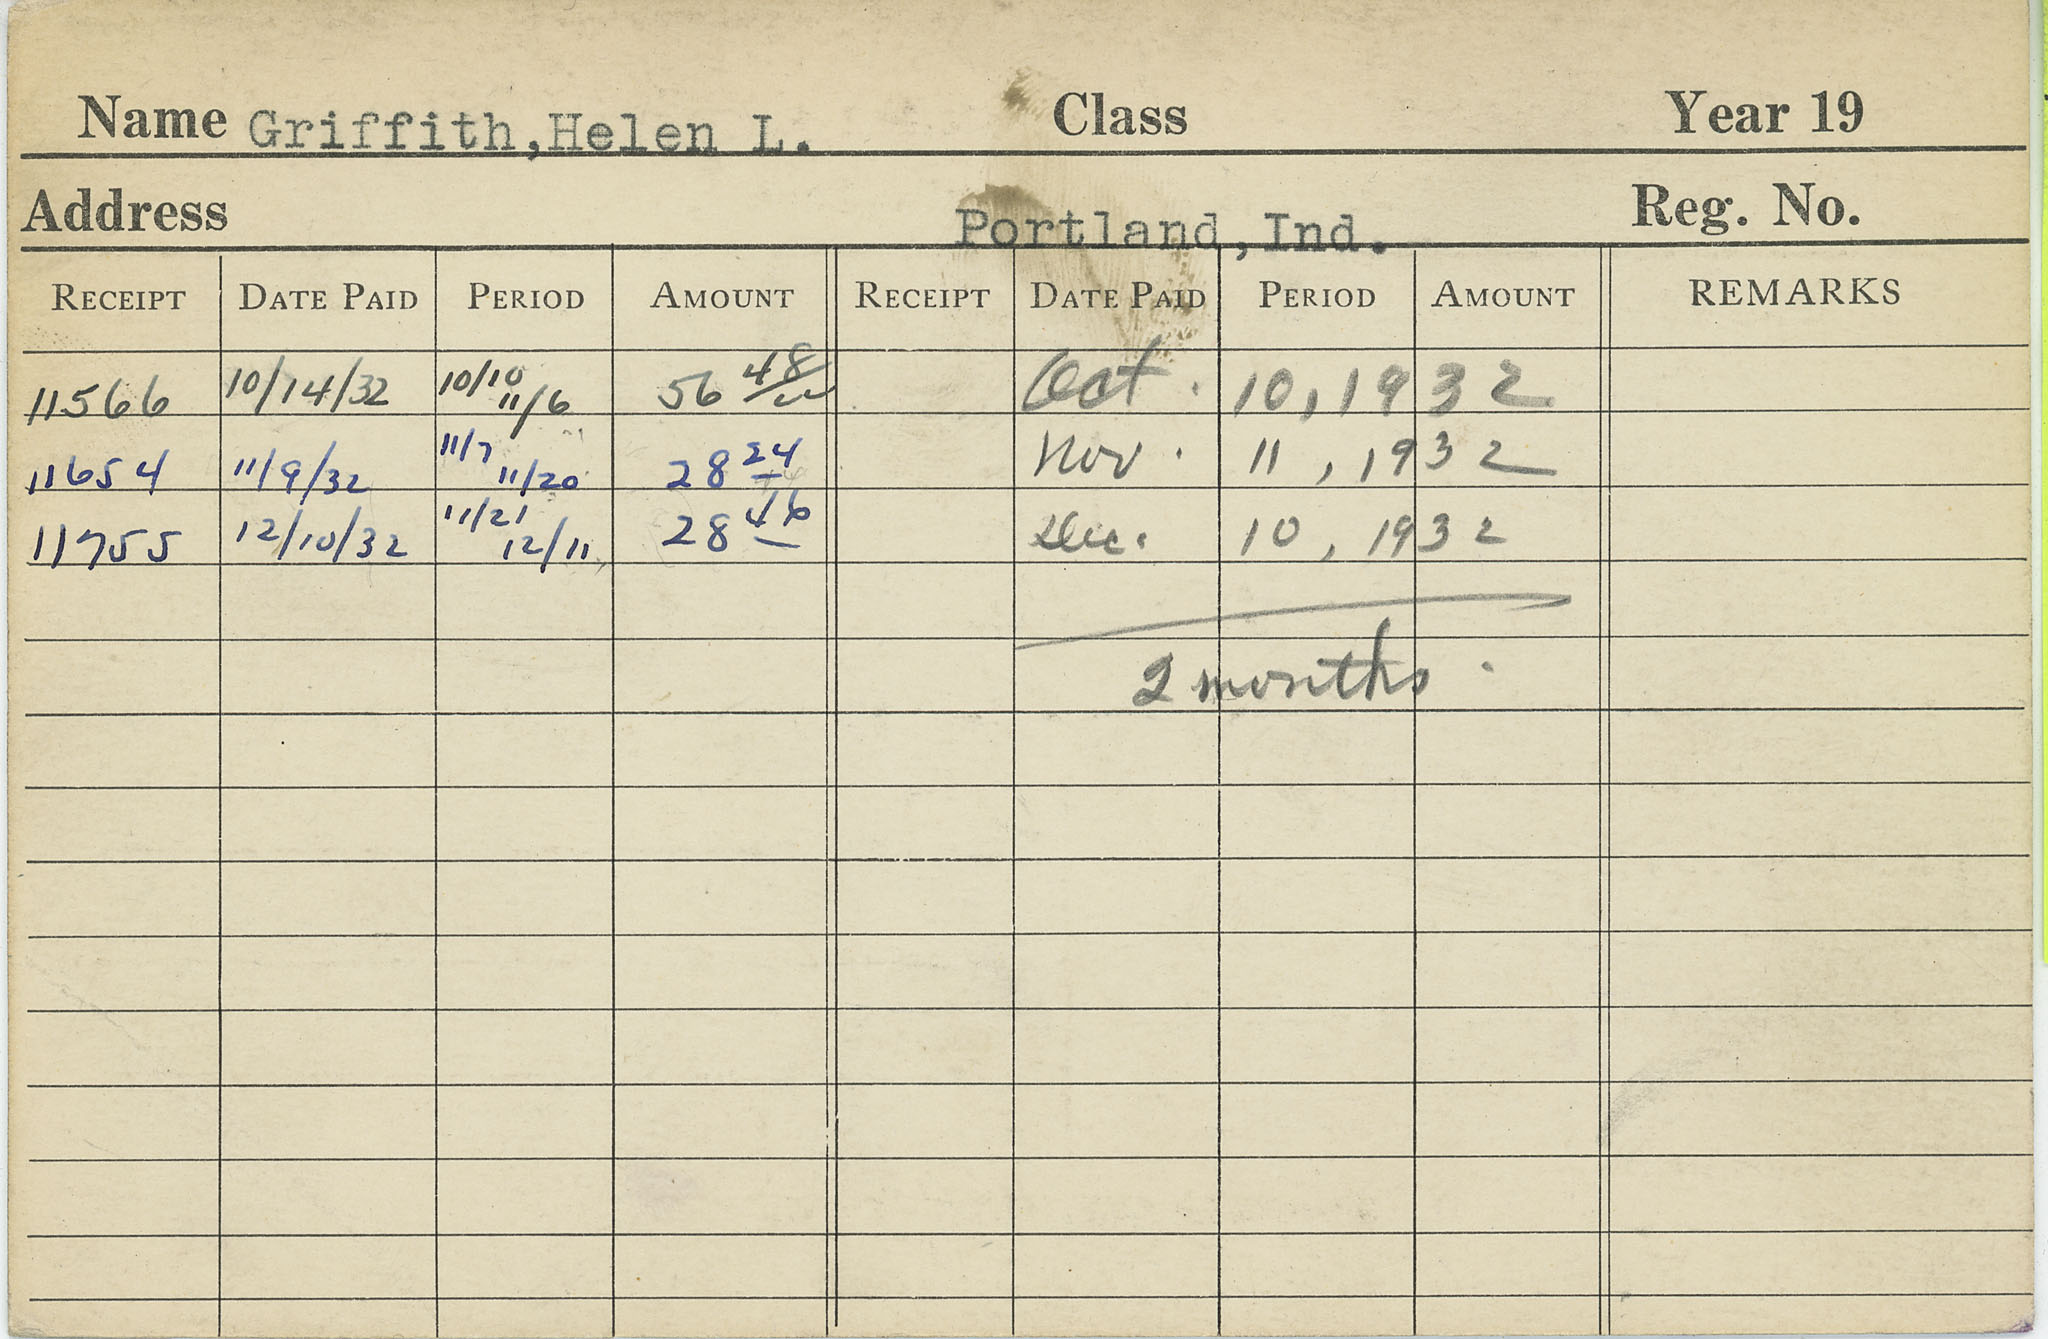 Name Griffith, Helen L. Class Year 19
Address Portland, Ind. Reg. No.
RECEIPT DATE PAID PERIOD AMOUNT RECEIPT DATE PAID PERIOD AMOUNT REMARKS
11566 10/14/32 10/10 11/6 56 48 Oct. 10, 1932
11654 11/9/32 11/7 11/20 28 24 Nov. 11, 1932
11755 12/10/32 11/21 12/11 28 46 Dec. 10, 1932
2 months.